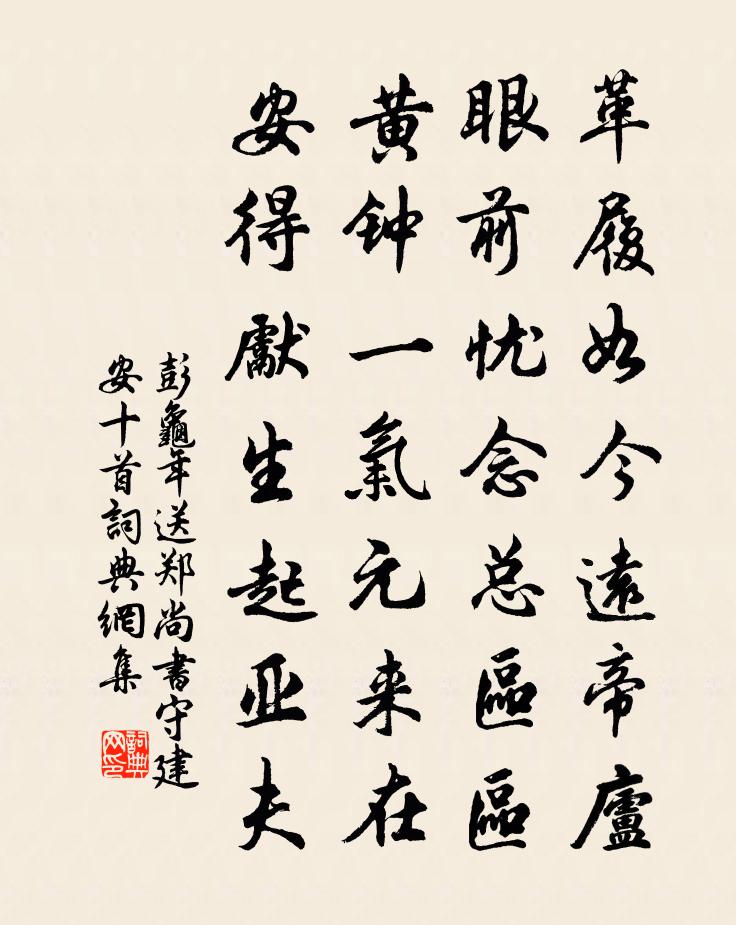 革履如今遠帝廬
眼前忧念总區區
黄钟一氣元来在
安得獻生起亚夫
彭龜年送郑尚書守建
安十首詞典網集
詞典网印